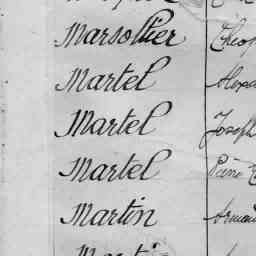 Marsollier Théop
Martel Alexa
Martel Joseph
Martel Pierre
Martin Arman
Marti